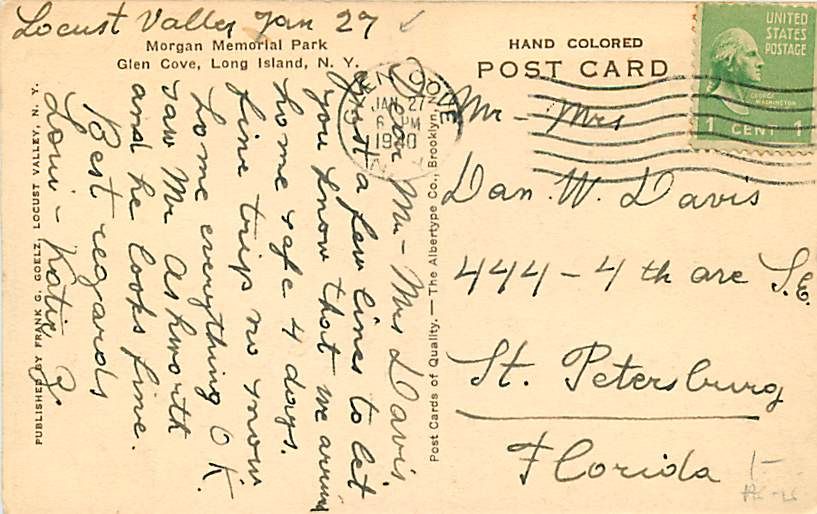 Locust Valley Jan 27
Morgan Memorial Park
Glen Cove, Long Island, N. Y.
Dear Mr - Mrs Davis
Just a few lines to let
you know that we arrived
home safe 4 days.
fine trip no snow
home everything O K.
saw Mr Ashworth
and he looks fine.
Best regards
Loui - Katie Z.
PUBLISHED BY FRANK G. GOELZ, LOCUST VALLEY, N. Y.
Post Cards of Quality. — The Albertype Co., Brooklyn,
GLEN COVE
JAN 27
6 PM
1940
N.Y.
HAND COLORED
POST CARD
UNITED
STATES
POSTAGE
GEORGE
WASHINGTON
1 CENT 1
Mr - Mrs
Dan. W. Davis
444 - 4 th ave S.E.
St. Petersburg
Florida